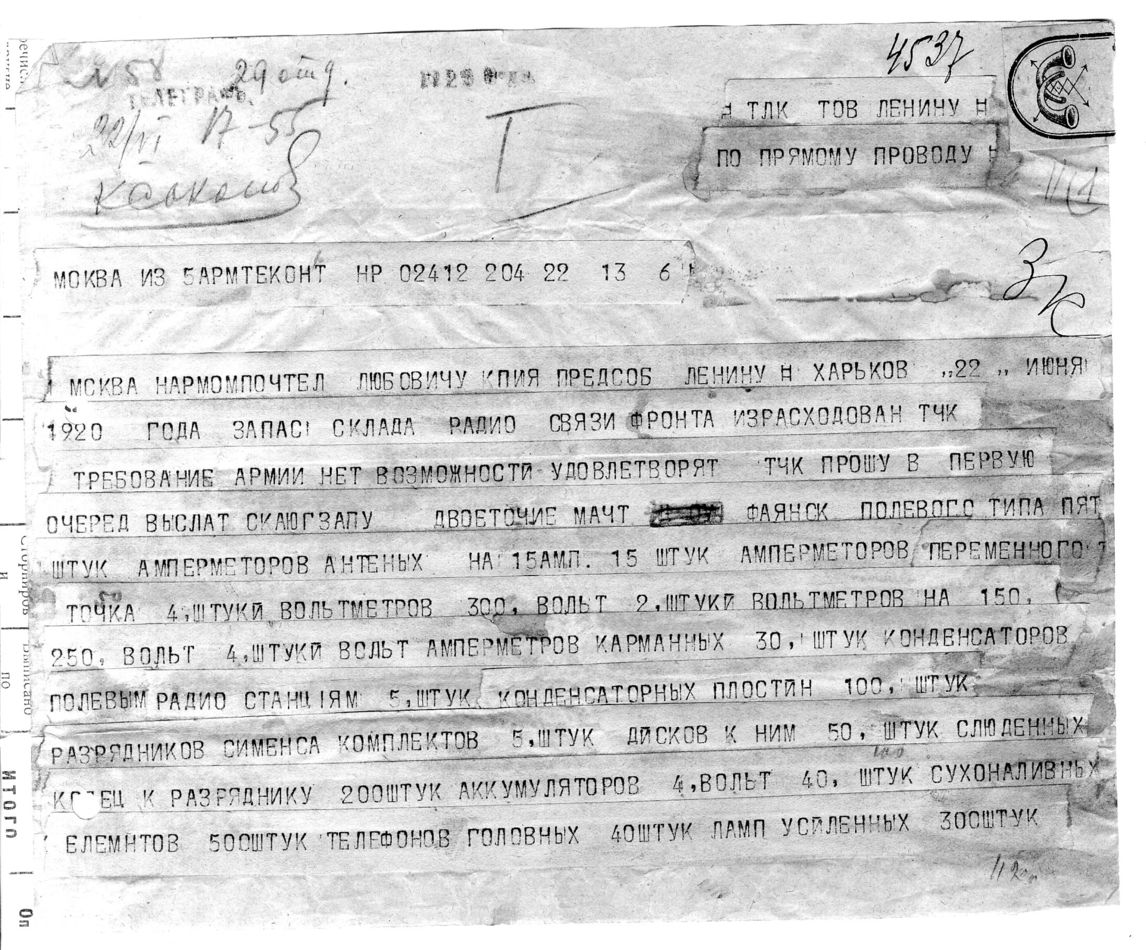 4537
№ 58 29 отд.
ТЕЛЕГРАФЪ.
22/VI 17-55
I
Н ТЛК ТОВ ЛЕНИНУ Н
ПО ПРЯМОМУ ПРОВОДУ Н
МОСКВА ИЗ 5АРМТЕКОНТ НР 02412 204 22 13 6
МСКВА НАРМОМПОЧТЕЛ ЛЮБОВИЧУ КПИЯ ПРЕДСОБ ЛЕНИНУ Н ХАРЬКОВ „22 „ ИЮНЯ
1920 ГОДА ЗАПАС СКЛАДА РАДИО СВЯЗИ ФРОНТА ИЗРАСХОДОВАН ТЧК
ТРЕБОВАНИЕ АРМИИ НЕТ ВОЗМОЖНОСТИ УДОВЛЕТВОРЯТ ТЧК ПРОШУ В ПЕРВУЮ
ОЧЕРЕД ВЫСЛАТ СКАЮГЗАПУ ДВОЕТОЧИЕ МАЧТ ФАЯНСК ПОЛЕВОГО ТИПА ПЯТ
ШТУК АМПЕРМЕТОРОВ АНТЕНЫХ НА 15АМП. 15 ШТУК АМПЕРМЕТОРОВ ПЕРЕМЕННОГО
ТОЧКА 4,ШТУКЙ ВОЛЬТМЕТРОВ 300, ВОЛЬТ 2,ШТУКЙ ВОЛЬТМЕТРОВ НА 150,
250, ВОЛЬТ 4,ШТУКЙ ВОЛЬТ АМПЕРМЕТРОВ КАРМАННЫХ 30, ШТУК КОНДЕНСАТОРОВ
ПОЛЕВЫМ РАДИО СТАНЦІЯМ 5,ШТУК КОНДЕНСАТОРНЫХ ПЛОСТЙН 100, ШТУК
РАЗРЯДНИКОВ СИМЕНСА КОМПЛЕКТОВ 5,ШТУК ДЙСКОВ К НИМ 50, ШТУК СЛЮДЕННЫХ
К ЕЦ К РАЗРЯДНИКУ 200ШТУК АККУМУЛЯТОРОВ 4,ВОЛЬТ 40, ШТУК СУХОНАЛИВНЫХ
ЕЛЕМНТОВ 500ШТУК ТЕЛЕФОНОВ ГОЛОВНЫХ 40ШТУК ЛАМП УСЙЛЕННЫХ 300ШТУК
и
по
Выписано
ИТОГО
Оп